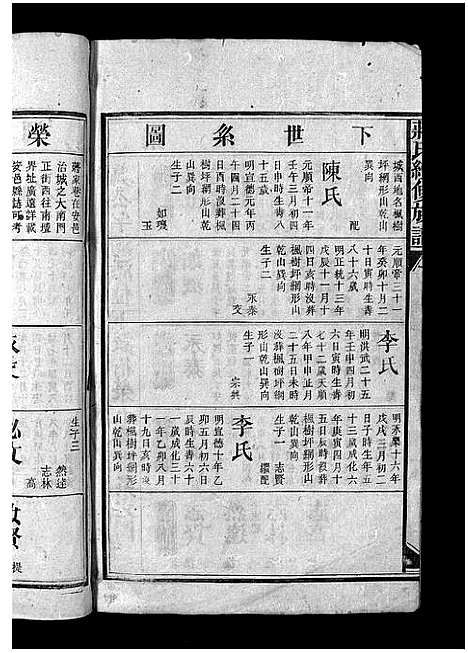 下世系圖
城西地名楓樹
坪網形山乾山
巽向
配
陳氏
元順帝十一年
壬午三月初四
日戌時生壽八
十五歲
明宣德元年丙
午四月二十四
日酉時沒葬楓
樹坪網形山乾
山巽向
生子二
如瓊
玉
元順帝三十一
年癸卯十月二
十日寅時生壽
八十六歲
明正統十三年
戊辰十一月十
四日亥時沒葬
楓樹坪網形山
乾山巽向
生子二
永泰
交
李氏
明洪武二十五
年壬申四月初
六日寅時生壽
七十二歲天順
八年甲申正月
二十五日未時
沒葬楓樹坪網
形山乾山巽向
生子一
宗興
明永樂十六年
戊戌三月初二
日子時生壽四
十三歲成化六
年庚寅四月十
五日辰時歿葬
楓樹坪網形山
乾山巽向
生子一
志賢
繼配
李氏
明宣德十年乙
卯五月初六日
卯時生壽六十
一歲成化三十
一年乙卯八月
十九日亥時歿
葬楓樹坪網形
山乾山巽向
榮
蔣家巷在安邑
治城之大南門
正街西往南壇
界址廣遠詳載
安邑縣誌可考
生子三
然達
志林
高
賢
提